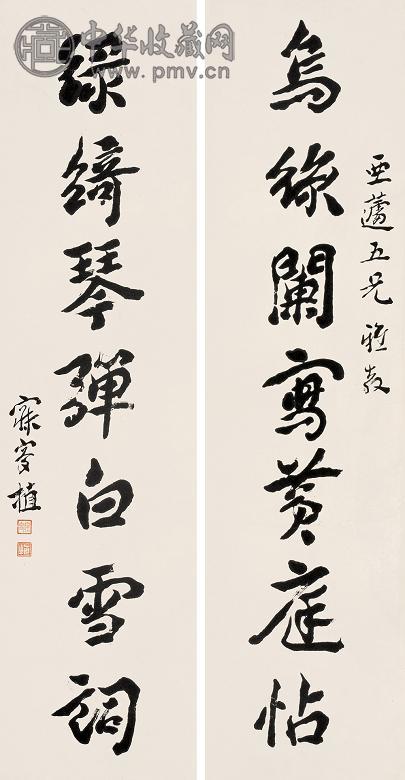 中华收藏网
www.pmv.cn
亚蘧五兄雅教
烏絲闌寫黃庭帖
綠綺琴彈白雪詞
寐叟植